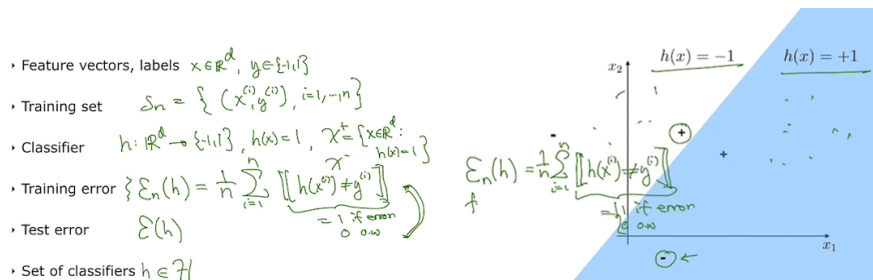 › Feature vectors, labels x ∈ ℝᵈ, y ∈ {-1,1}
› Training set Sₙ = { (x⁽ⁱ⁾, y⁽ⁱ⁾), i=1,...,n}
› Classifier h: ℝᵈ → {-1,1}, h(x)=1, X⁺ = {x∈ℝᵈ: h(x)=1}
X⁻
› Training error } Ɛₙ(h) = 1/n Σⁿᵢ₌₁ [[h(x⁽ⁱ⁾) ≠ y⁽ⁱ⁾]]
= 1 if error
0 o.w
› Test error Ɛ(h)
› Set of classifiers h ∈ H
h(x) = −1
h(x) = +1
x₂
-
+
+
Ɛₙ(h) = 1/n Σⁿᵢ₌₁ [[h(x⁽ⁱ⁾) ≠ y⁽ⁱ⁾]]
= 1 if error
0 o.w
x₁
-